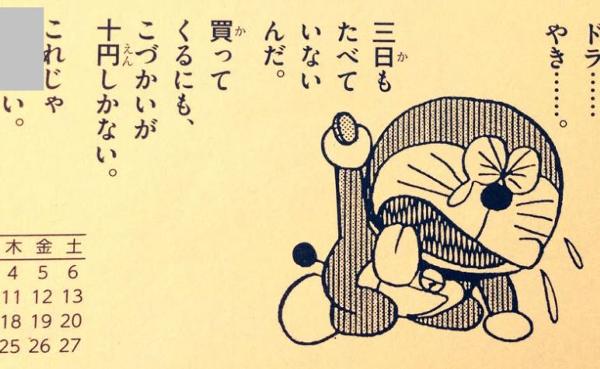 ドラ……
やき……。
三日も
たべて
いない
んだ。
買って
くるにも、
こづかいが
十円しかない。
これじゃ
い。
木 金 土
4 5 6
11 12 13
18 19 20
25 26 27